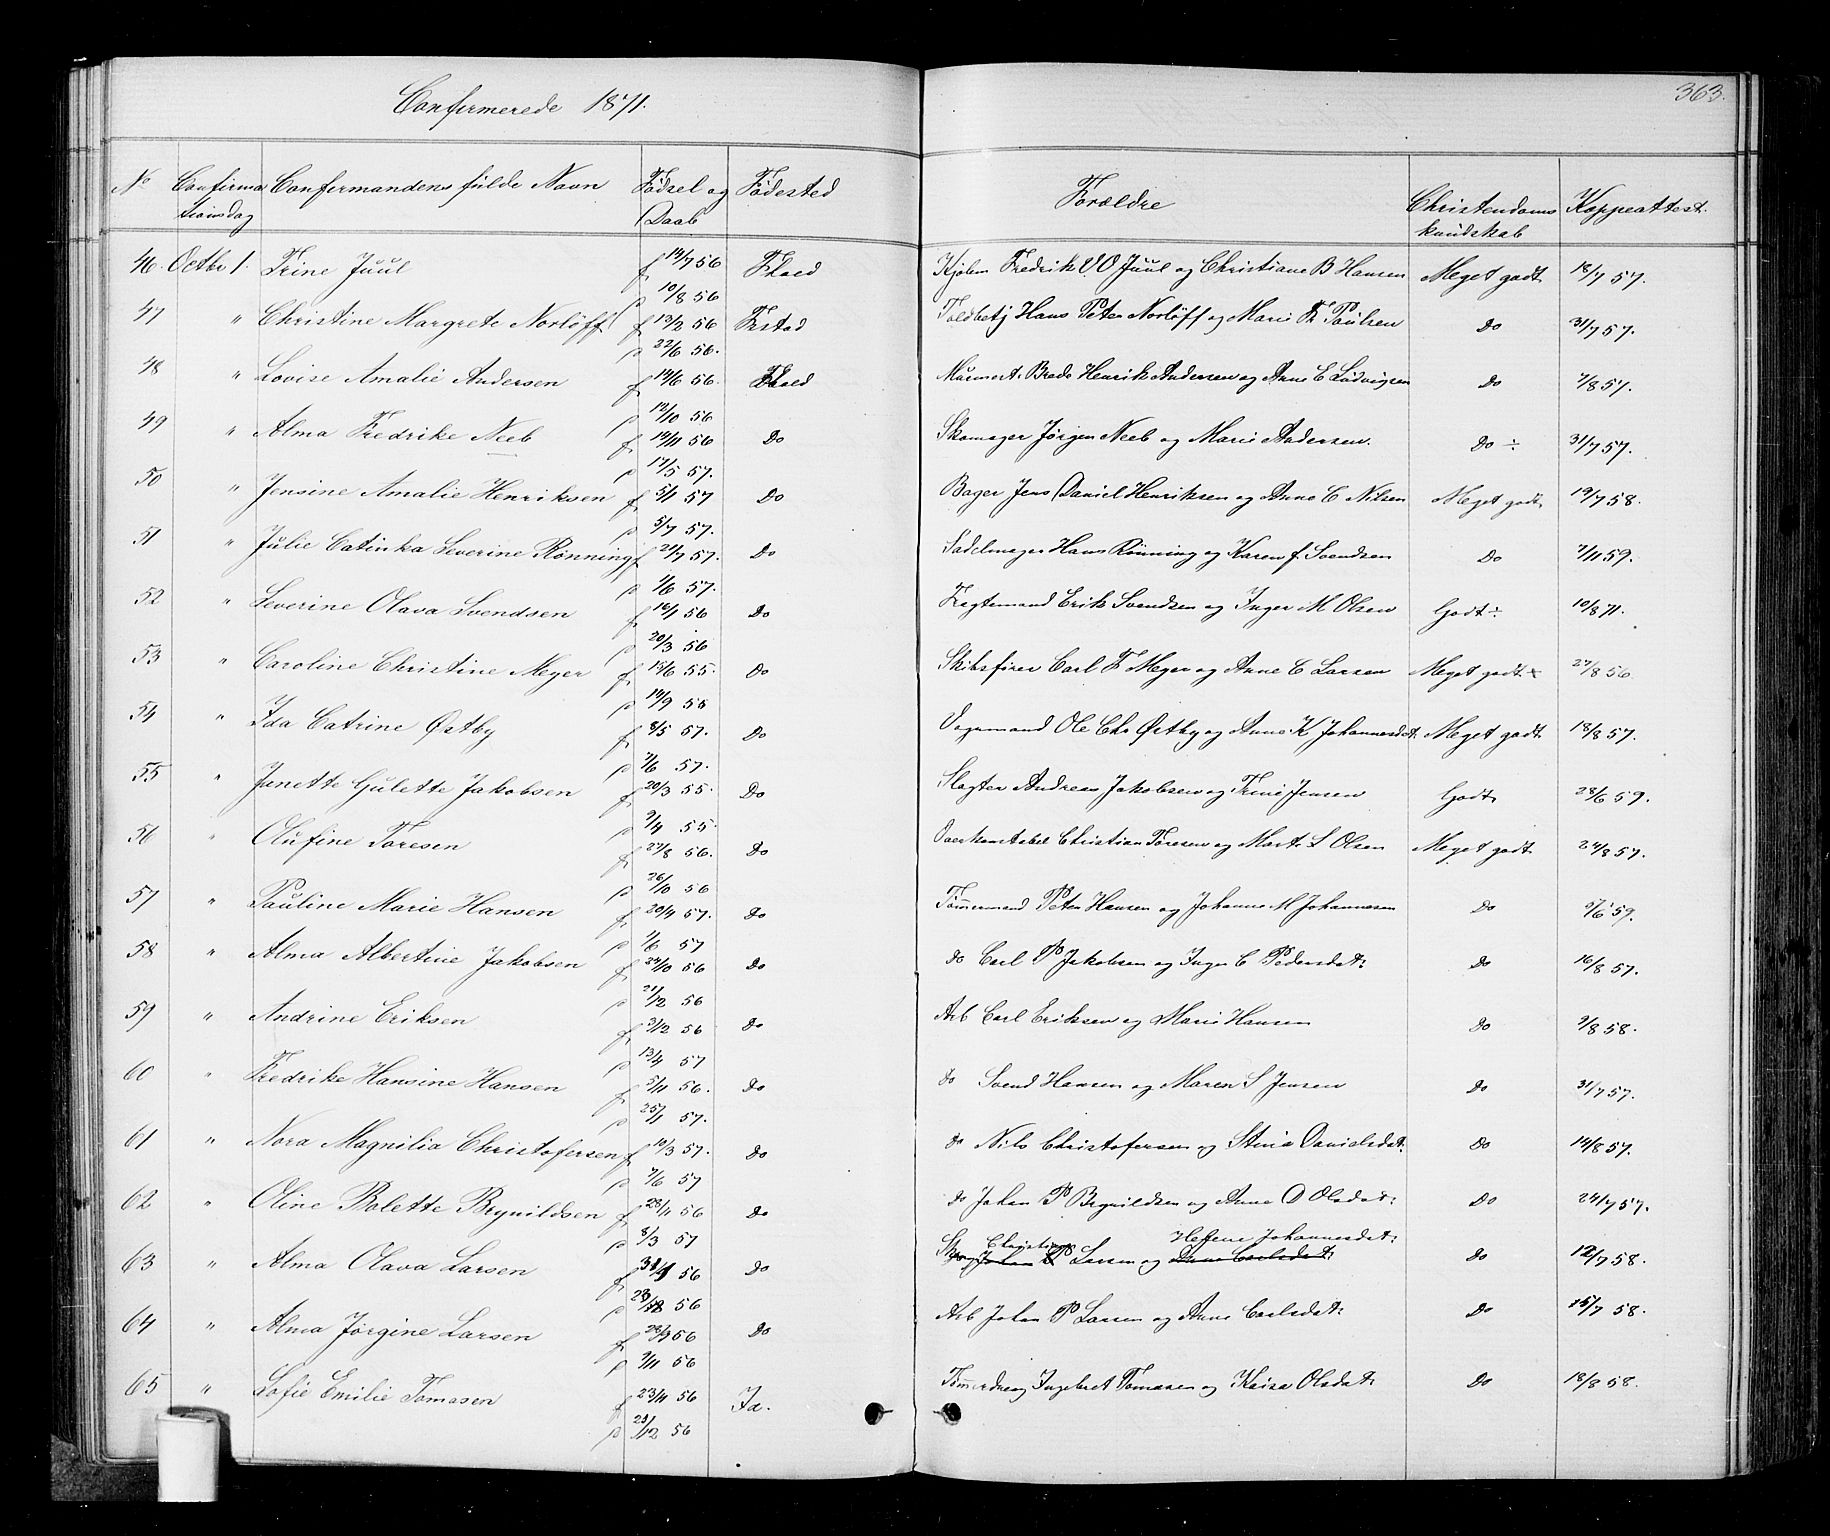 Confermerede 1871.
363.
No Confirma tionsdag Confermandens fulde Navn Fødsel og Daab Fødested Forældre Christendoms kundskab Koppeattest.
46. Octbr 1. Trine Juul f 14/7 56 Fhald Kjøbm Fredrik V O Juul og Christiane B Hansen Meget godt 18/7 57.
p 10/8 56
47 " Christine Margrete Norløff f 13/2 56 Frstad Toldbetj Hans Peter Norløff og Marie Fr Paulsen Do 31/7 57.
p 22/6 56.
48 " Lovise Amalie Andersen f 14/6 56. Fhald Murmest. Brede Henrik Andersen og Anne E Ludvigsen Do 7/8 57.
p 12/10 56
49 " Alma Fredrike Neeb f 14/11 56 Do Skomager Jørgen Neeb og Marie Andersen. Do ÷ 31/7 57.
p 17/5 57.
50 " Jensine Amalie Henriksen f 5/1 57 Do Bager Jens Daniel Henriksen og Anne C Nilsen Meget godt 19/7 58.
p 5/7 57.
51 " Julie Catinka Severine Rønning f 21/7 57. Do Sadelmager Hans Rønning og Karen f. Svendsen Do 7/11 59.
p 1/6 57.
52 " Severine Olava Svendsen f 16/1 56 Do Fragtemand Erik Svendsen og Inger M Olsen Godt ÷ 10/8 71.
p 20/3 56
53 " Caroline Christine Meyer f 15/6 55. Do Skibsfører Carl F Meyer og Anne C Larsen Meget godt 27/8 56
p 14/9 55
54 " Ida Catrine Østby f 8/5 57. Do Vognmand Ole Chr Østby og Anne K Johannesdat. Meget godt 18/8 57.
p 7/6 57.
55 " Janette Gulette Jakobsen f 20/3 55. Do Slagter Andreas Jakobsen og Trine Jensen Godt 28/6 59.
p 9/4 55
56 " Olufine Toresen f 27/8 56. Do Overkonstabel Christian Toresen og Mart. S Olsen Meget godt 24/8 57.
p 26/10 56
57 " Pauline Marie Hansen f 20/4 57. Do Tømmermand Peter Hansen og Johanne M Johannesen Do 5/6 59.
p 1/6 57
58 " Alma Albertine Jakobsen f 24/10 56 Do do Carl P Jakobsen og Inger C Pedersdat: Do 16/8 57.
p 21/12 56
59 " Andrine Eriksen f 3/12 56 Do Arb Carl Eriksen og Marie Hansen Do 9/8 58.
p 13/4 57
60 " Fredrike Hansine Hansen f 5/11 56. Do do Svend Hansen og Maren S Jensen Do 31/7 57.
p 25/1 57.
61 " Nora Magnilia Christofersen f 10/3 57. Do do Nils Christofersen og Stina Danielsdat: Do 14/8 57.
p 7/6 57
62 " Oline Bolette Brynildsen f 23/11 56 Do do Johan P Brynildsen og Anne D Olsdat: Do 24/7 57.
p 8/3 57
Christian Hellene Johannesdat:
63 " Alma Olava Larsen f 56 Do Johan P Larsen og Anne Carlsdat: Do 12/7 58.
p 56
64 " Alma Jørgine Larsen f 56 Do Arb Johan P Larsen og Anne Carlsdat: Do 15/7 58.
p 9/11 56
65 " Sofie Emilie Tomasen f 23/11 56 Id. Tømerdreng Ingebret Tomasen og Kaisa Olsdat: Do 18/8 58.
p 21/12 56